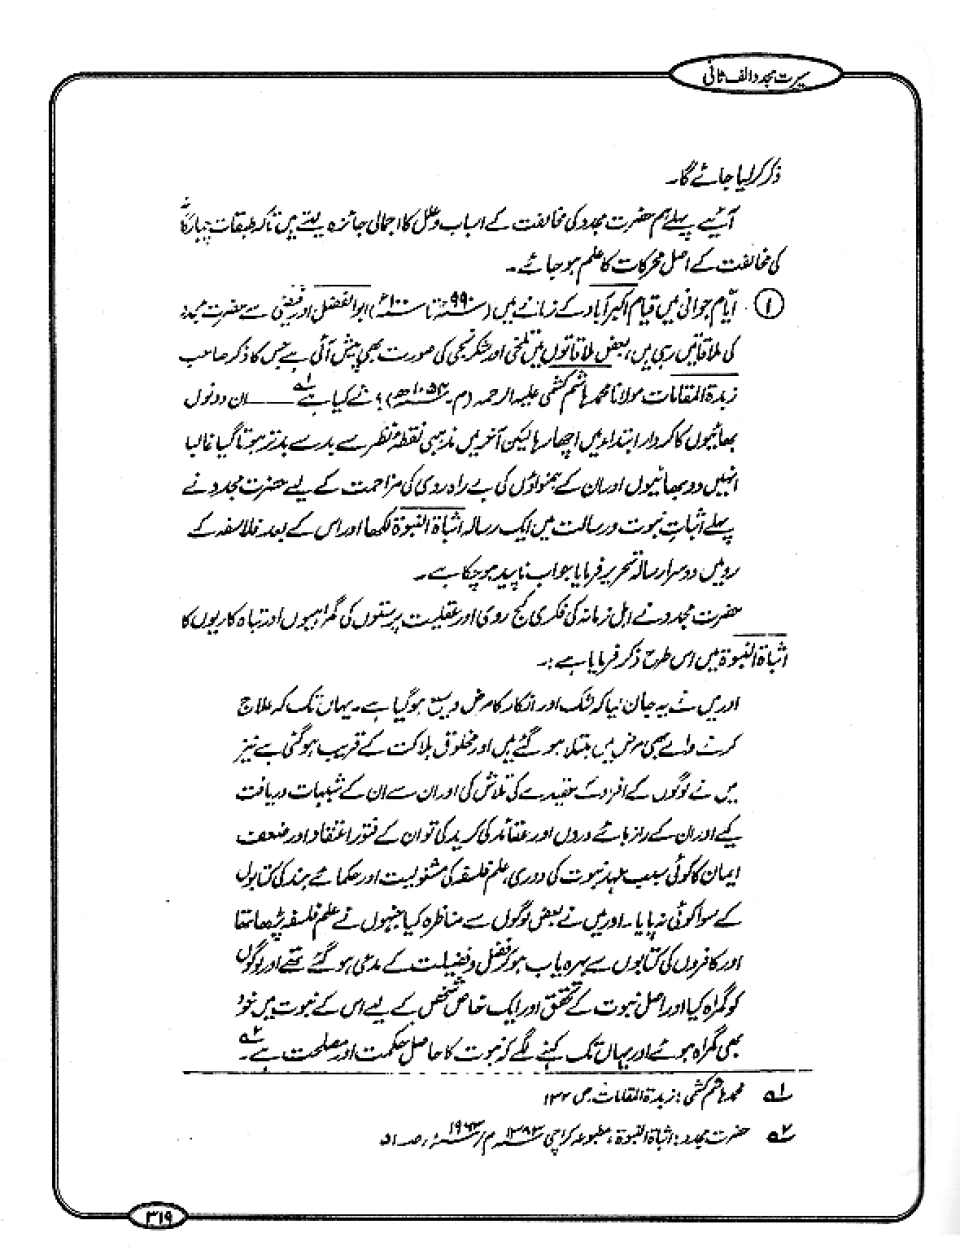 سیرت مجدد الف ثانی
ذکر کیا جائے گا۔
آئیے پہلے ہم حضرت مجدد کی مخالفت کے اسباب و علل کا اجمالی جائزہ لیتے ہیں تاکہ طبقات چہارگانہ
کی مخالفت کے اصل محرکات کا علم ہو جائے۔
۱ ایّام جوانی میں قیام اکبر آباد کے زمانے میں (۹۹۰ھ تا ۱۰۰۰ھ) ابوالفضل اور فیضی سے حضرت مجدد
کی ملاقاتیں رہی ہیں، بعض ملاقاتوں میں تلخی اور شکر رنجی کی صورت بھی پیش آئی ہے جس کا ذکر صاحب
زبدۃ المقامات مولانا محمد ہاشم کشمی علیہ الرحمہ (م۔ ۱۰۵۴ھ) نے کیا ہے ۱ـــــــ ان دونوں
بھائیوں کا کردار ابتداء میں اچھا رہا لیکن آخر میں مذہبی نقطۂ نظر سے بد سے بدتر ہوتا گیا غالبا
انہیں دو بھائیوں اور ان کے ہمنواؤں کی بے راہ روی کی مزاحمت کے لیے حضرت مجدد نے
پہلے اثباتِ نبوت و رسالت میں ایک رسالہ اثباۃ النبوۃ لکھا اور اس کے بعد فلاسفہ کے
رد میں دوسرا رسالہ تحریر فرمایا جو اب ناپید ہو چکا ہے۔
حضرت مجدد نے اہل زمانہ کی فکری کج روی اور عقلیت پرستوں کی گمراہیوں اور تباہ کاریوں کا
اثباۃ النبوۃ میں اس طرح ذکر فرمایا ہے :۔
اور میں نے یہ جان لیا کہ شک اور انکار کا مرض وسیع ہو گیا ہے۔ یہاں تک کہ علاج
کرنے والے بھی مرض میں مبتلا ہو گئے ہیں اور مخلوق ہلاکت کے قریب ہو گئی ہے نیز
میں نے لوگوں کے افراد کے عقیدے کی تلاش کی اور ان سے ان کے شبہات دریافت
کیے اور ان کے رازہائے دروں اور عقائد کی کرید کی تو ان کے فتور اعتقاد اور ضعف
ایمان کا کوئی سبب عہد نبوت کی دوری، علم فلسفہ کی مشغولیت اور حکمائے ہند کی کتابوں
کے سوا کوئی نہ پایا۔ اور میں نے بعض لوگوں سے مناظرہ کیا جنہوں نے علم فلسفہ پڑھا تھا
اور کافروں کی کتابوں سے بہرہ یاب ہو کر فضل و فضیلت کے مدعی ہو گئے تھے اور لوگوں
کو گمراہ کیا اور اصل نبوت کے تحقق اور ایک خاص شخص کے لیے اس کے ثبوت میں خود
بھی گمراہ ہوئے اور یہاں تک کہنے لگے کہ نبوت کا حاصل حکمت اور مصلحت ہے ۲۔
۱ محمد ہاشم کشمی : زبدۃ المقامات۔ ص ۱۳۲
۲ حضرت مجدد : اثباۃ النبوۃ، مطبوعہ کراچی ۱۳۸۳ھ م/ ۱۹۶۳ء، ص ۵۱
۳۱۹